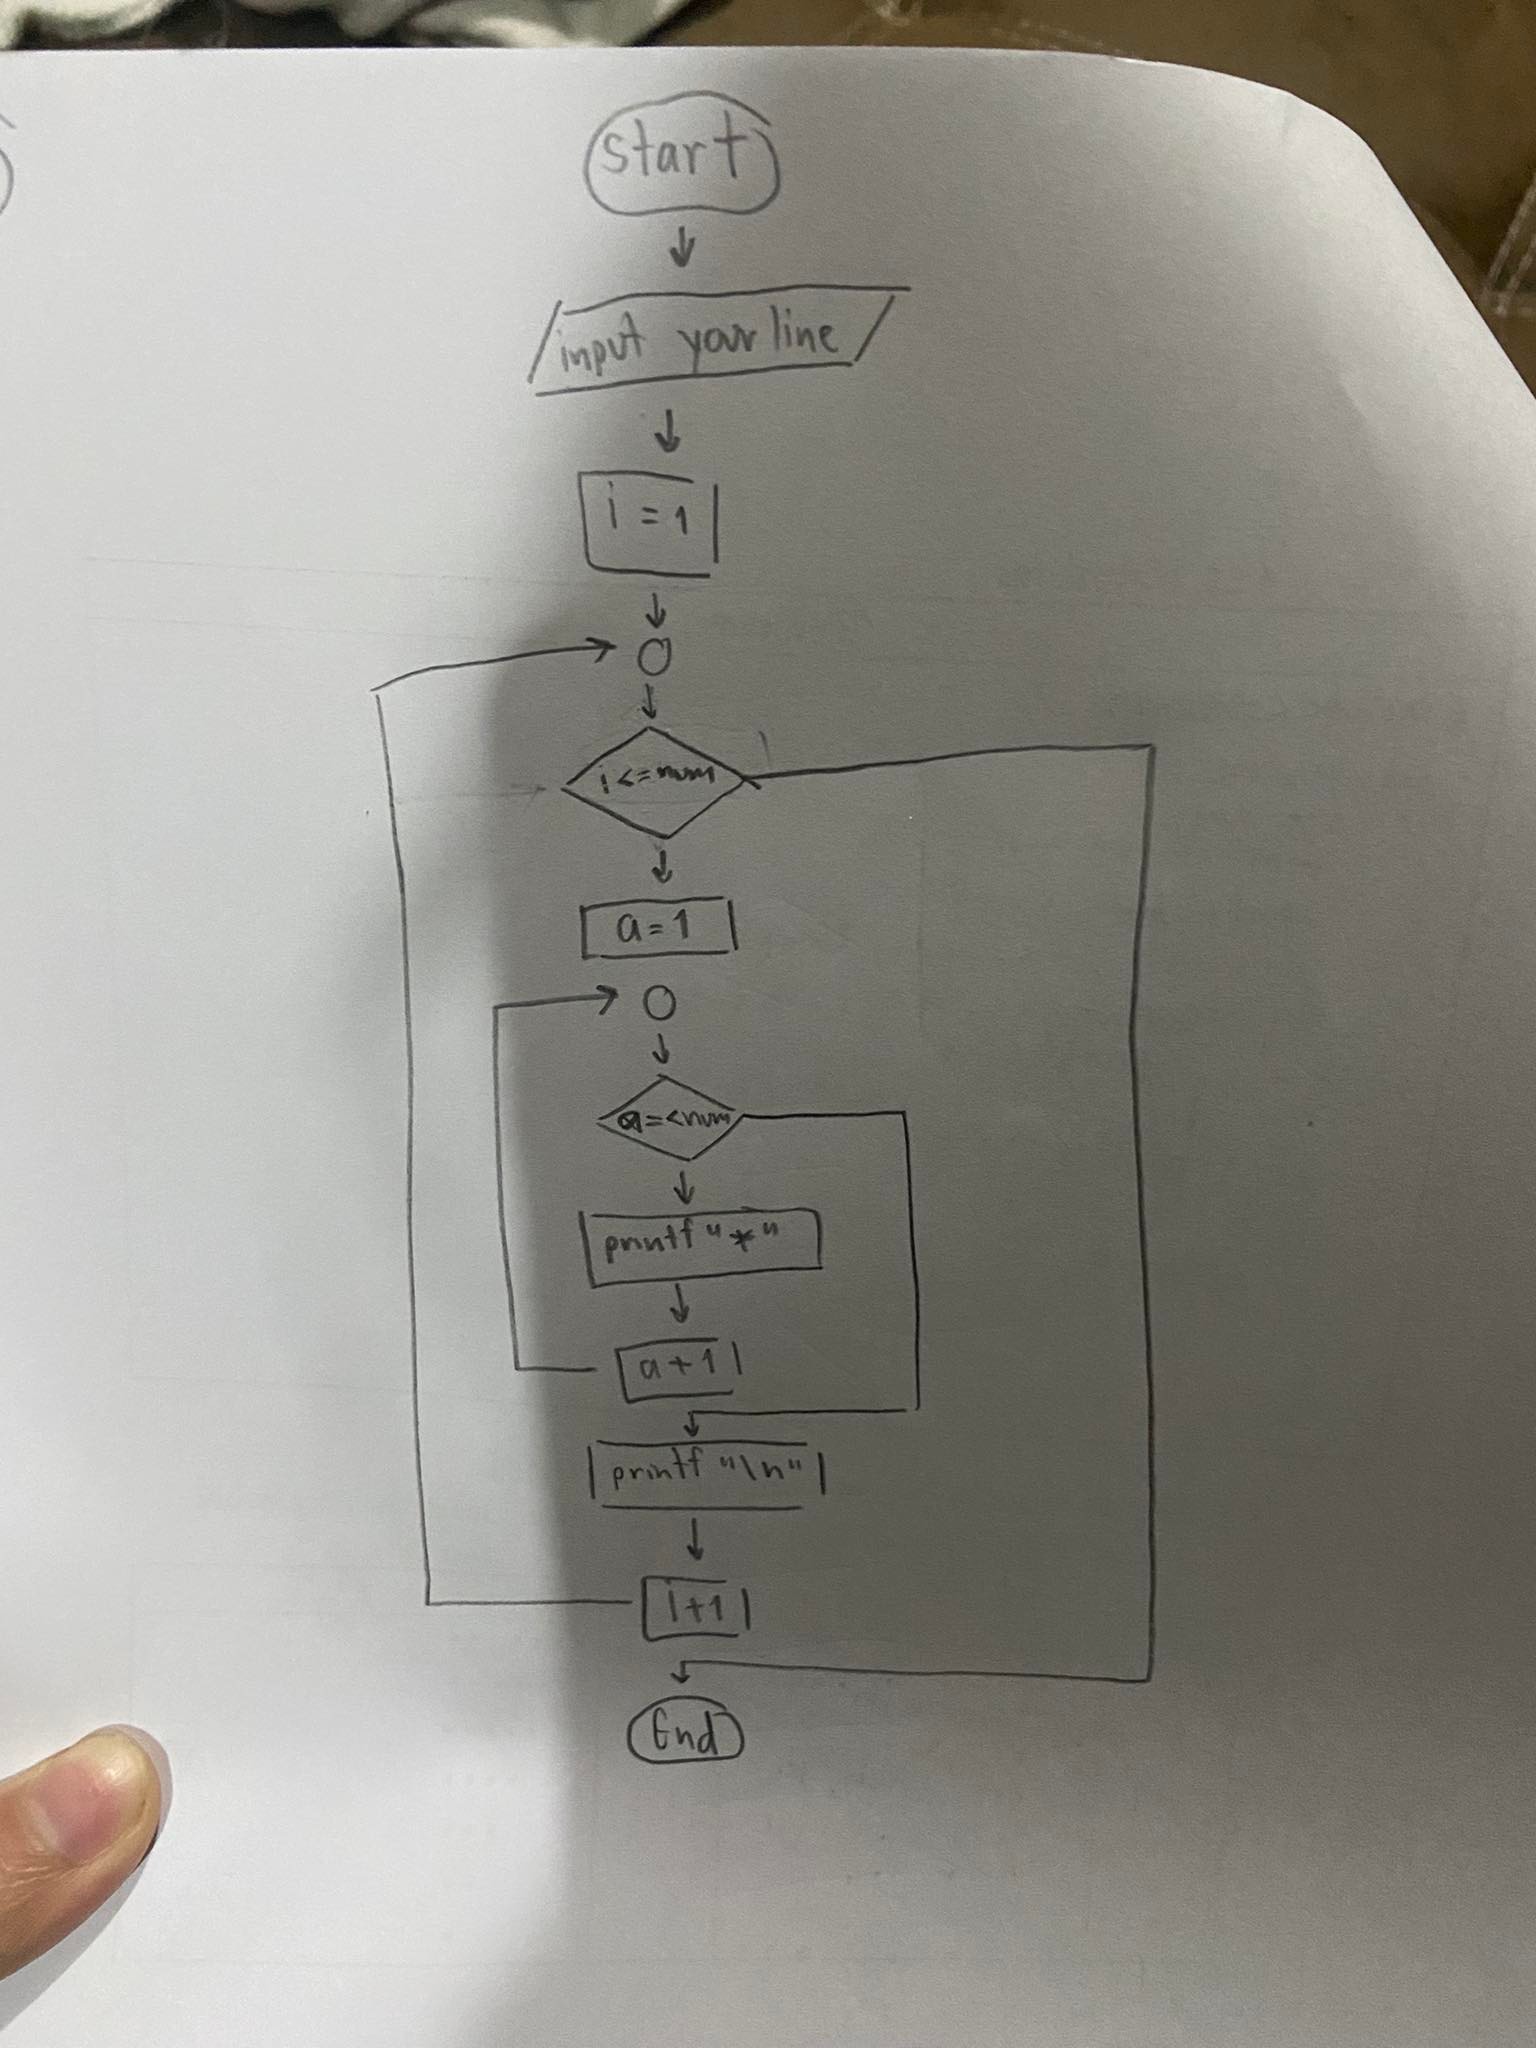 start
input your line
i = 1
i <= num
a = 1
a =< num
printf "*"
a + 1
printf "\n"
i + 1
End